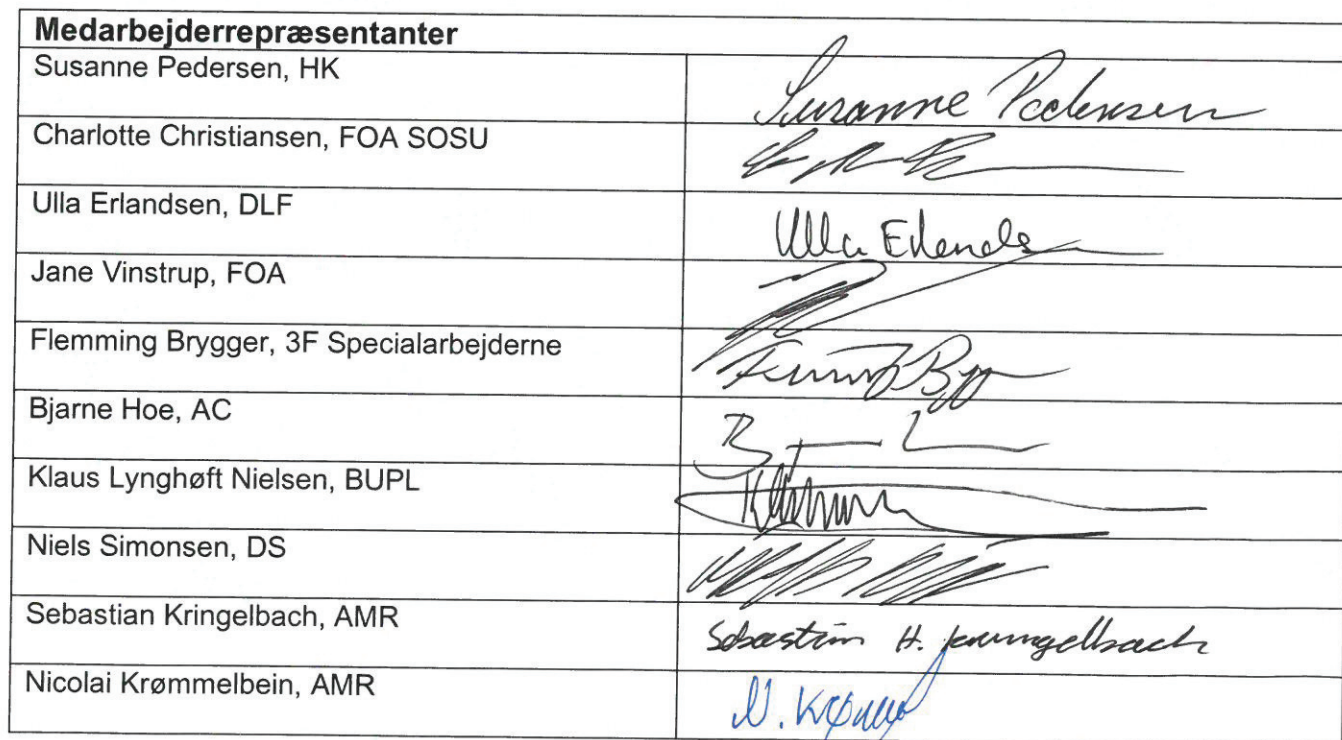 Medarbejderrepræsentanter
Susanne Pedersen, HK
Susanne Pedersen
Charlotte Christiansen, FOA SOSU
Ulla Erlandsen, DLF
Ulla Erlands
Jane Vinstrup, FOA
Flemming Brygger, 3F Specialarbejderne
Bjarne Hoe, AC
Klaus Lynghøft Nielsen, BUPL
Niels Simonsen, DS
Sebastian Kringelbach, AMR
Sebastian H. Kringelbach
Nicolai Krømmelbein, AMR
N.